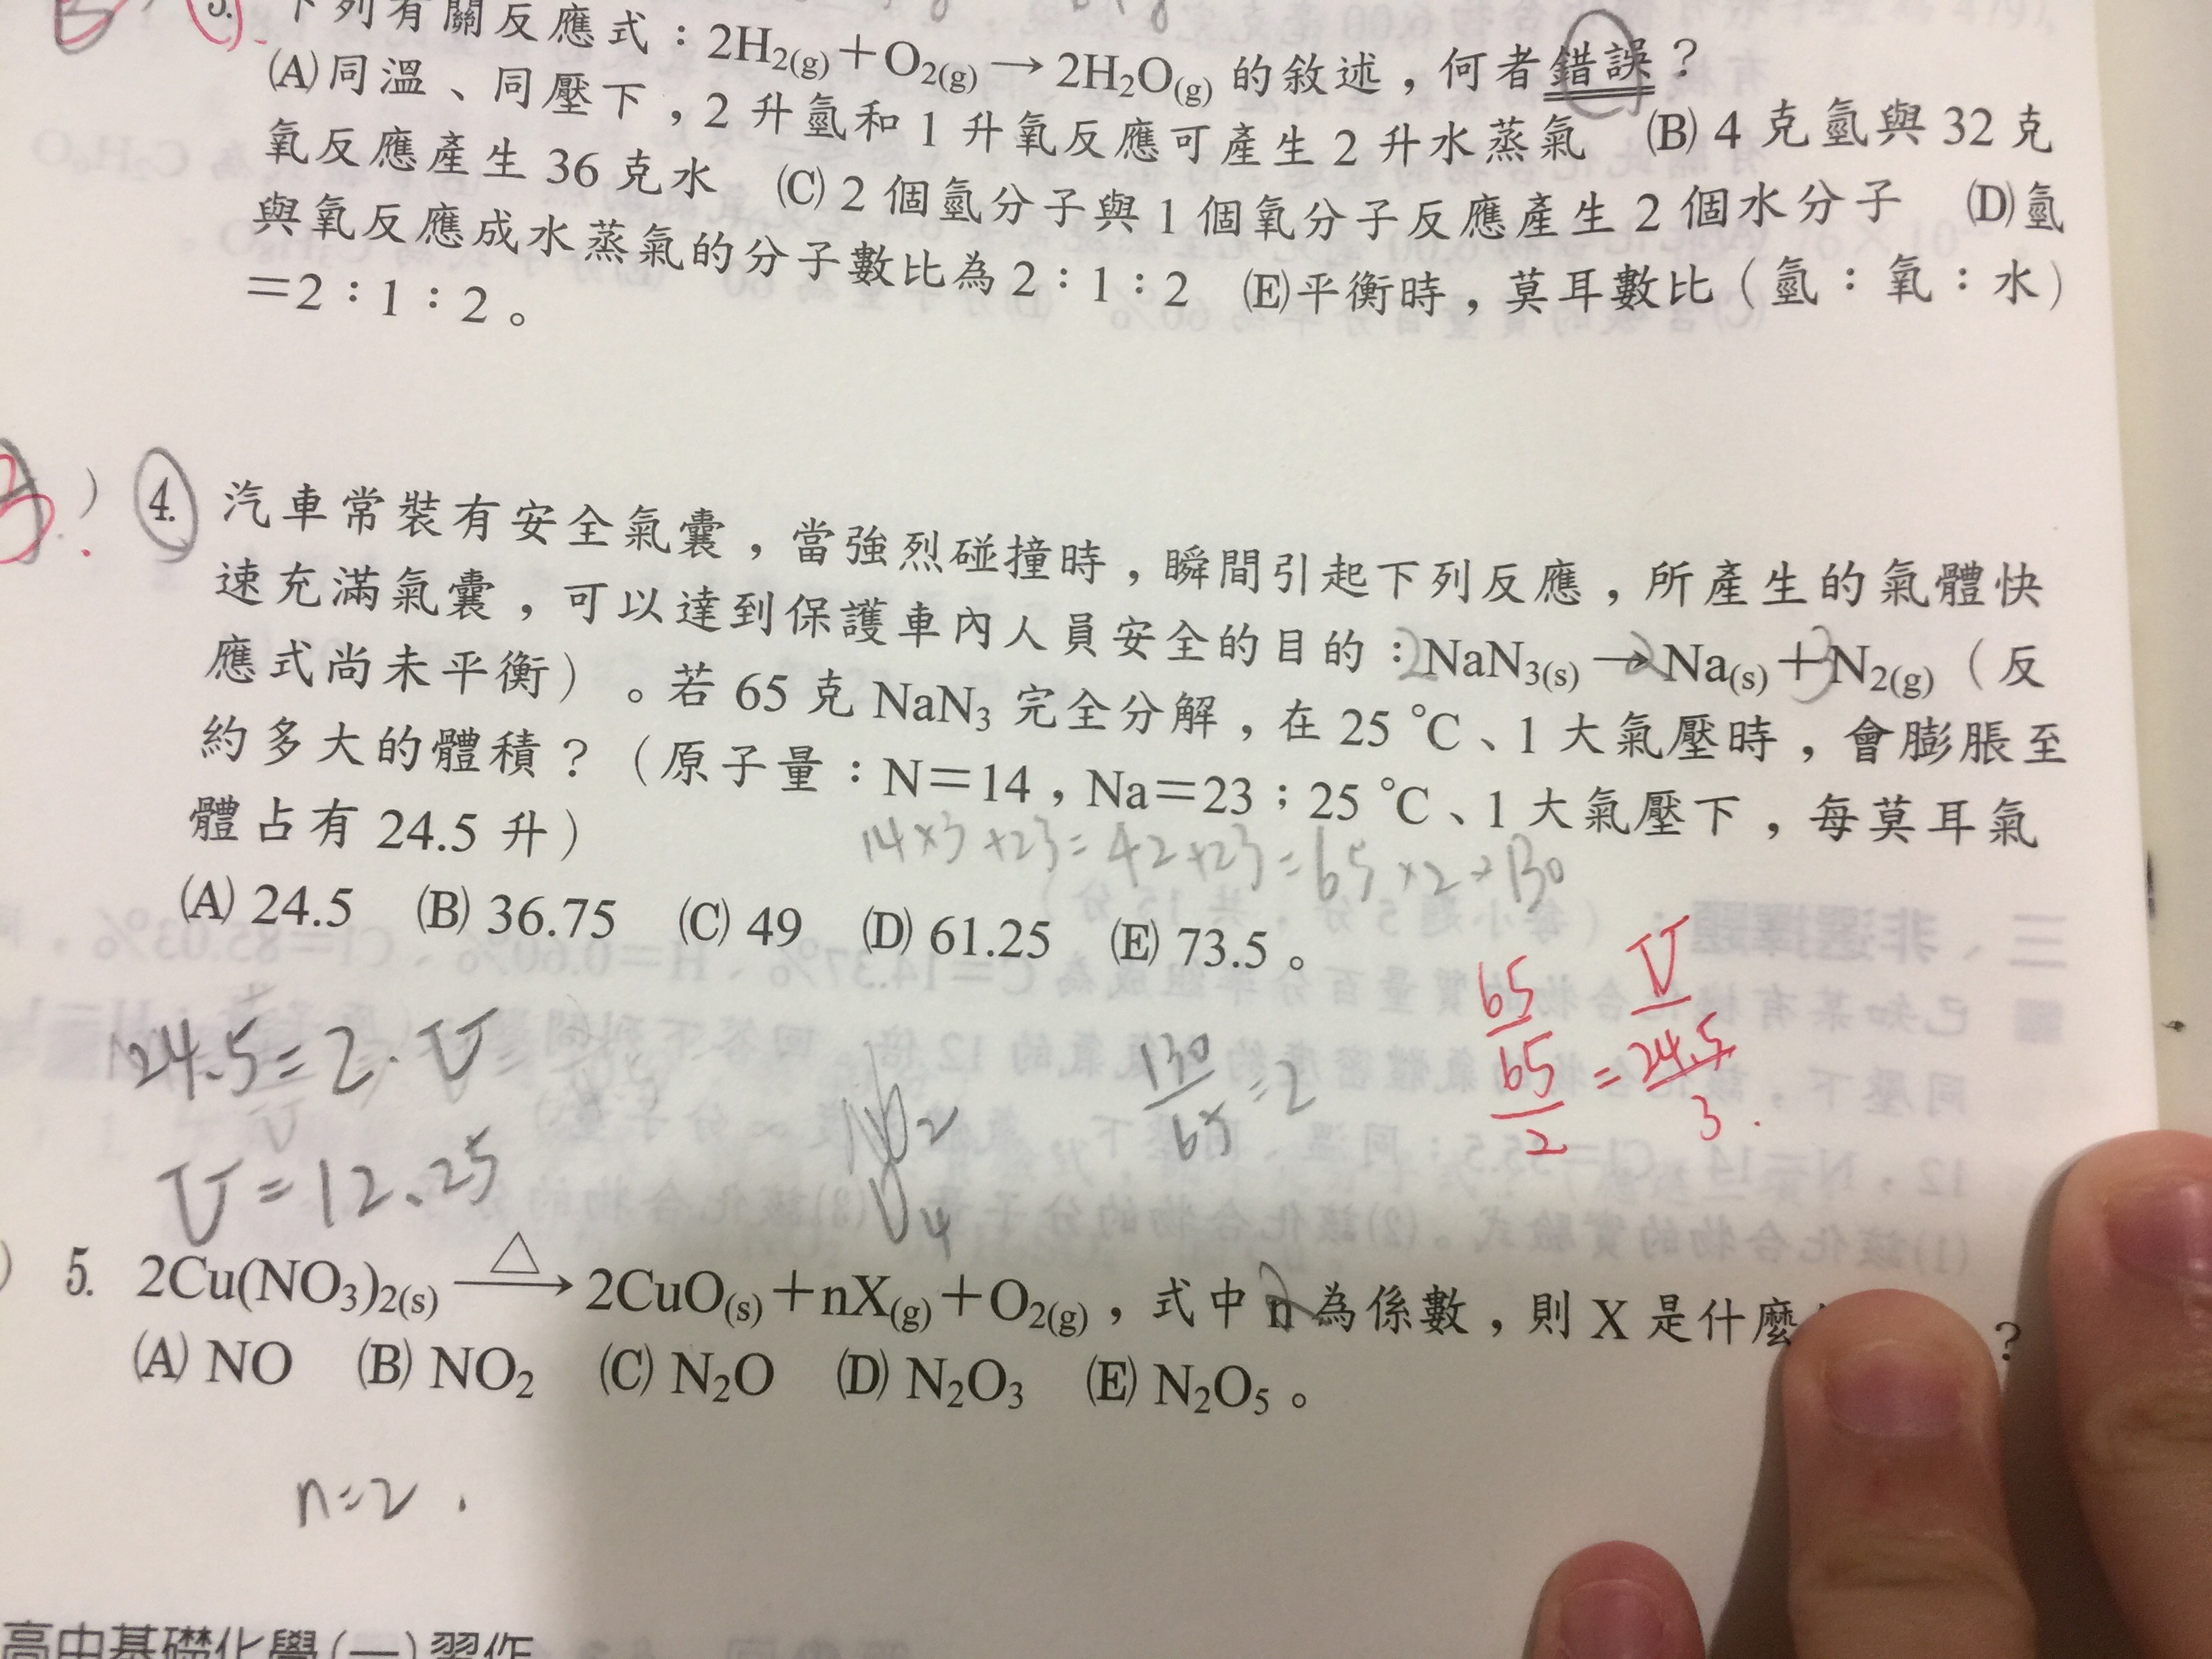 3. 下列有關反應式：2H₂(g)＋O₂(g)→2H₂O(g) 的敘述，何者錯誤？
(A)同溫、同壓下，2 升氫和 1 升氧反應可產生 2 升水蒸氣 (B) 4 克氫與 32 克
氧反應產生 36 克水 (C) 2 個氫分子與 1 個氧分子反應產生 2 個水分子 (D)氫
與氧反應成水蒸氣的分子數比為 2：1：2 (E)平衡時，莫耳數比（氫：氧：水）
＝2：1：2。
) 4. 汽車常裝有安全氣囊，當強烈碰撞時，瞬間引起下列反應，所產生的氣體快
速充滿氣囊，可以達到保護車內人員安全的目的：2NaN₃(s)→2Na(s)＋3N₂(g)（反
應式尚未平衡）。若 65 克 NaN₃ 完全分解，在 25 ℃、1 大氣壓時，會膨脹至
約多大的體積？（原子量：N＝14，Na＝23；25 ℃、1 大氣壓下，每莫耳氣
體占有 24.5 升）
14×3+23=42+23=65×2=130
(A) 24.5 (B) 36.75 (C) 49 (D) 61.25 (E) 73.5。
65/(65/2) = V/(24.5/3)
24.5=2·V
130/65=2
V=12.25
) 5. 2Cu(NO₃)₂(s) △→ 2CuO(s)＋nX(g)＋O₂(g)，式中 n 為係數，則 X 是什麼 ?
(A) NO (B) NO₂ (C) N₂O (D) N₂O₃ (E) N₂O₅。
n=2.
高中基礎化學(一)習作